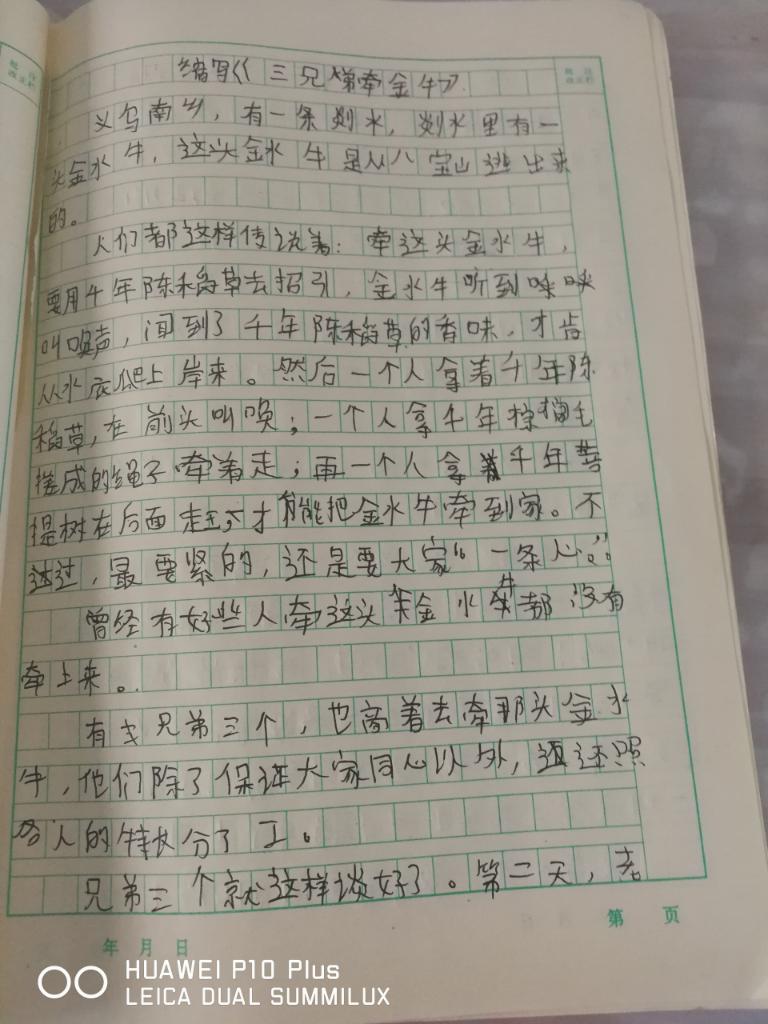 缩写《三兄弟牵金牛》
义乌南乡，有一条剡水，剡水里有一
头金水牛，这头金水牛是从八宝山逃出来
的。
人们都这样传说着：牵这头金水牛，
要用千年陈稻草去招引，金水牛听到哞哞
叫唤声，闻到了千年陈稻草的香味，才肯
从水底爬上岸来。然后一个人拿着千年陈
稻草，在前头叫唤；一个人拿千年棕榈毛
搓成的绳子牵着走；再一个人拿着千年菩
提树在后面赶，才能把金水牛牵到家。不
过，最要紧的，还是要大家“一条心”。
曾经有好些人牵这头金水牛都没有
牵上来。
有兄弟三个，也商着去牵那头金水
牛，他们除了保证大家同心以外，还照
各人的特长分了工。
兄弟三个就这样谈好了。第二天，老
第 页
年 月 日
HUAWEI P10 Plus
LEICA DUAL SUMMILUX